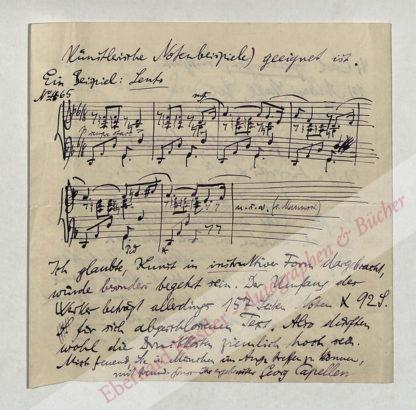 Künstlerische Notenbeispiele) geeignet ist.
Ein Beispiel: Lento
No 65
mf
u. s. w.
Ich glaubte, Kunst in instruktiver Form dargebracht,
würde besonders begehrt sein. Der Umfang des
Werkes beträgt allerdings 157 Seiten Noten & 92 S.
für sich abgeschlossenen Text. Also dürften
wohl die Druckkosten ziemlich hoch sein.
Mich freuend, Sie in München im Aug. treffen zu können,
mit
Georg Capellen
Eberhard Autographen & Bücher